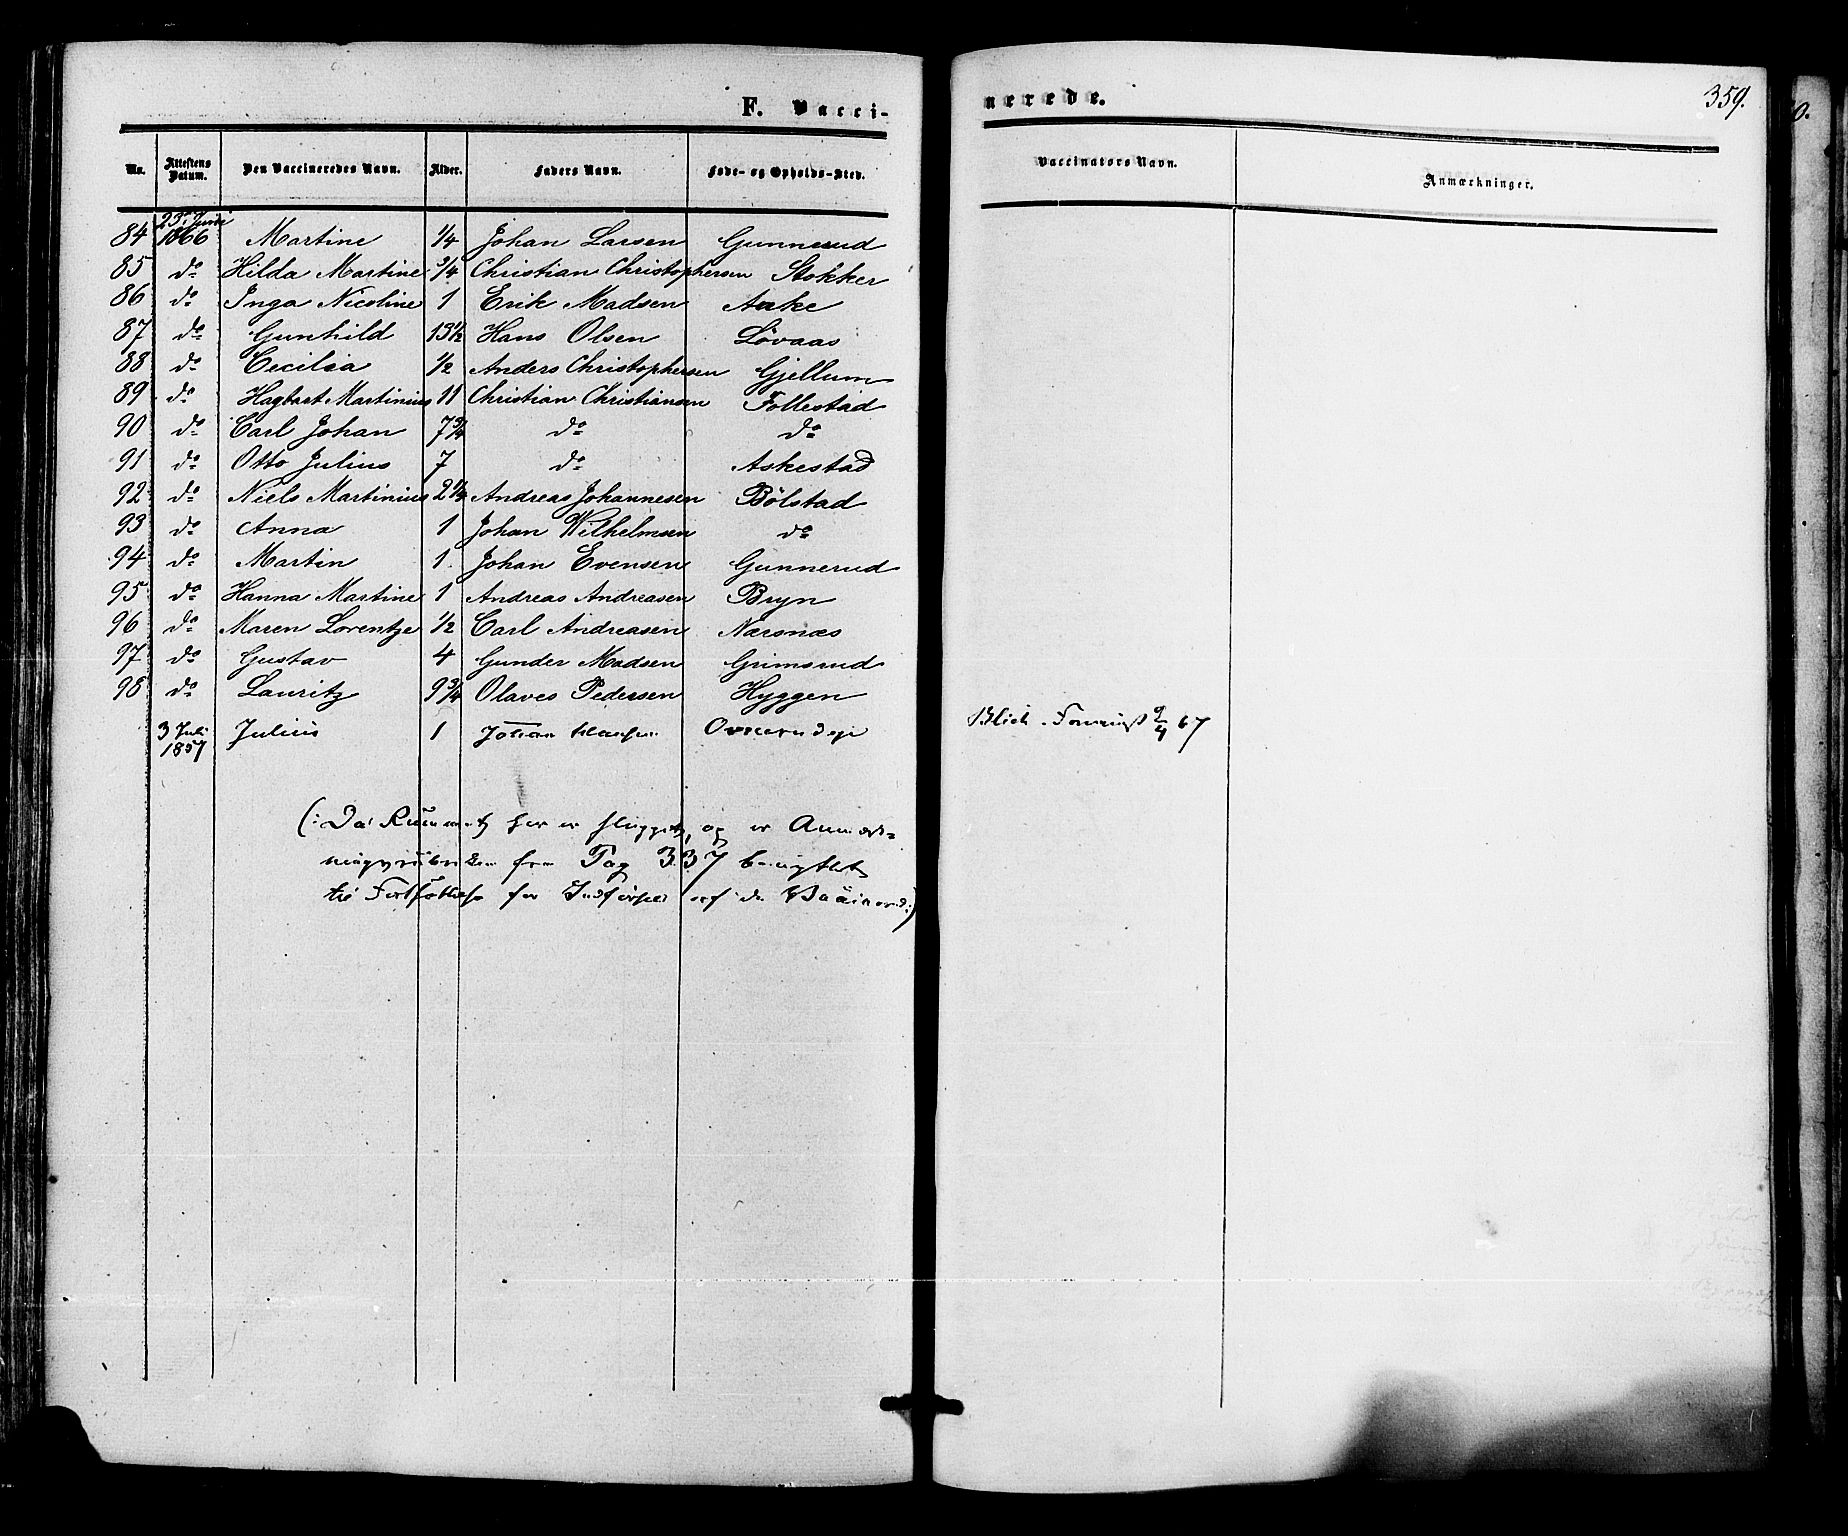 F. Vacci-
nerede.
359.
No. Attestens Datum. Den Vaccineredes Navn. Alder. Faders Navn. Føde- og Opholds-Sted. Vaccinators Navn. Anmærkninger.
84 23de Juni 1866 Martine 1/4 Johan Larsen Gunnerud
85 do Hilda Martine 3/4 Christian Christophersen Stokker
86 do Inga Nicoline 1 Erik Madsen Aake
87 do Gunhild 13 1/2 Hans Olsen Løvaas
88 do Cecilia 1/2 Anders Christophersen Gjellum
89 do Hagbart Martinius 11 Christian Christiansen Follestad
90 do Carl Johan 7 3/4 do do
91 do Otto Julius 7 do Askestad
92 do Niels Martinius 2 1/2 Andreas Johannesen Bølstad
93 do Anna 1 Johan Wilhelmsen do
94 do Martin 1. Johan Evensen Gunnerud
95 do Hanna Martine 1 Andreas Andreasen Bryn
96 do Maren Lorentze 1/2 Carl Andreasen Nærsnæs
97 do Gustav 4 Gunder Madsen Grimsrud
98 do Lauritz 9 3/4 Olaves Pedersen Hyggen
3 Juli 1857 Julius 1 Johan Hansen 9/4 67
(: Da Rummet her er sluppet, og er Anmærk-
ningsrubrikken fra Pag 337 benyttet
til Fortsættelse for Indførsel af de Vaccinerede :)